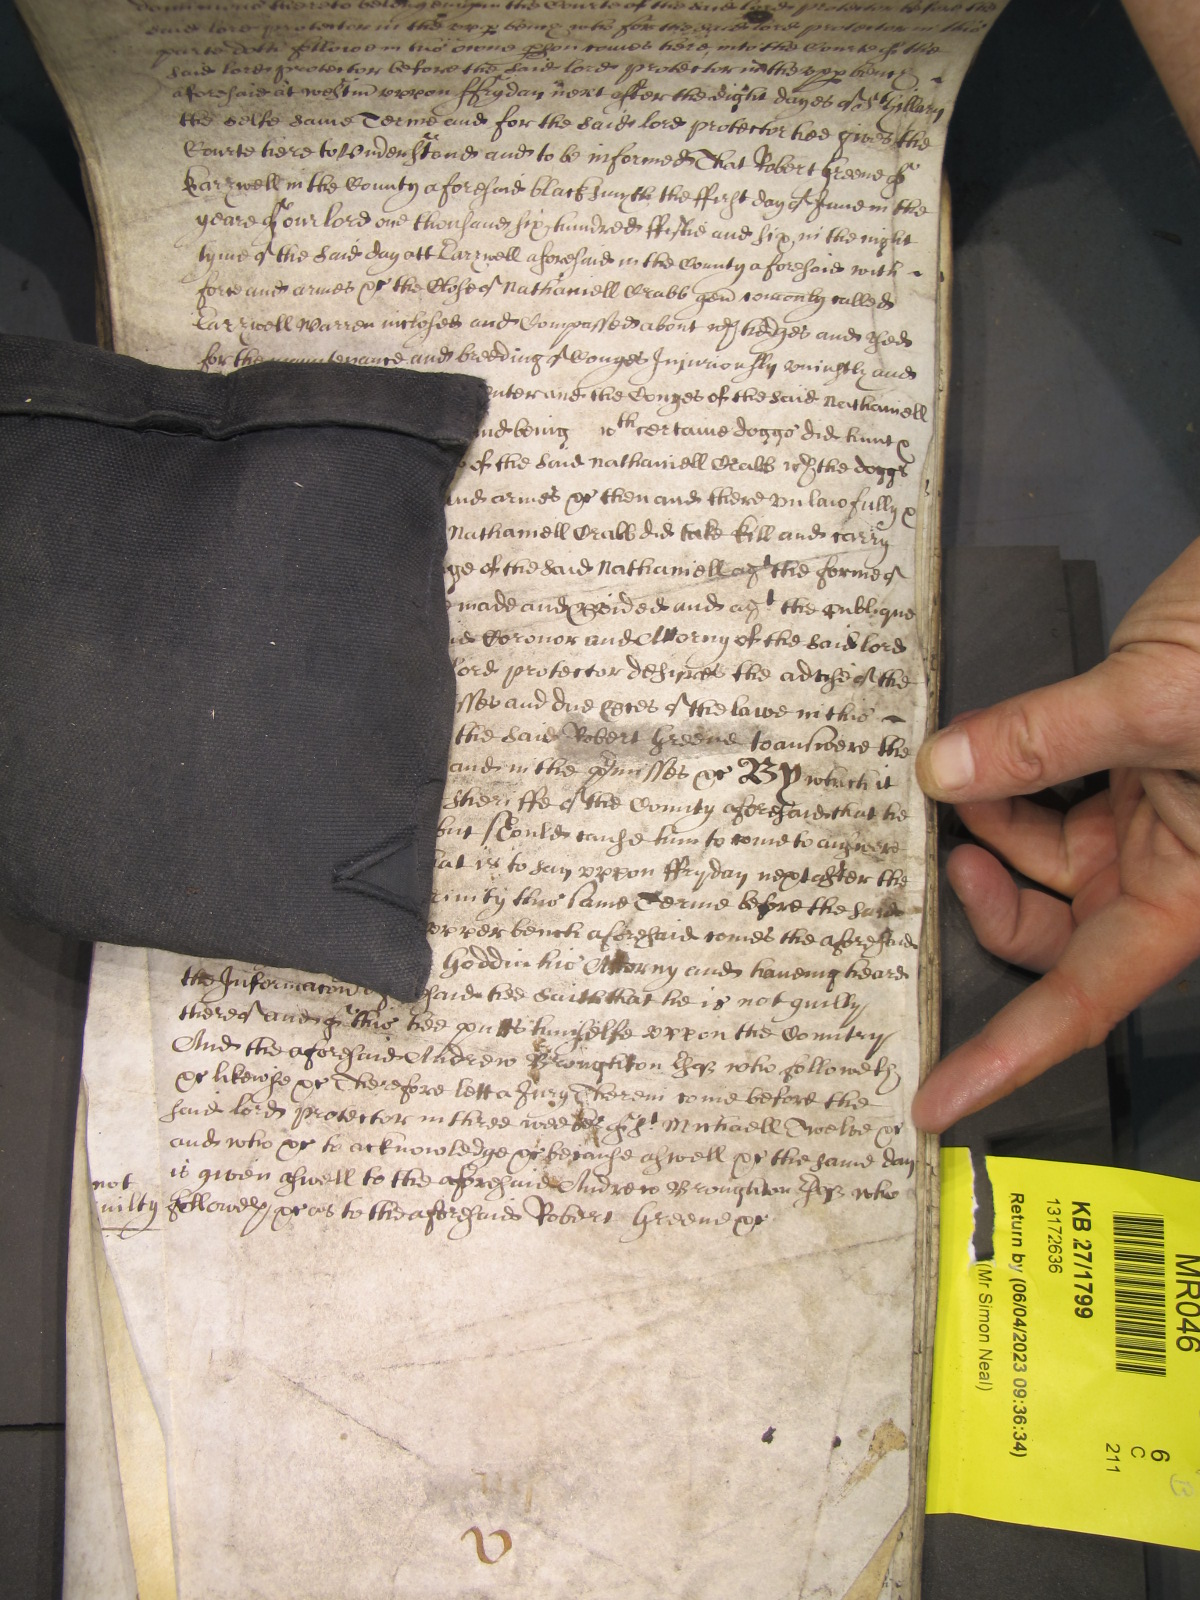 said lord protector before the said lord protector in the upp bench
aforesaid at westm uppon ffryday next after the eight dayes of St Hillary
the selfe same Terme and for the said lord protector hee gives the
Courte here to Understand and to be informed That Robert Greene of
in the County aforesaid blacksmyth the ffirst day of June in the
yeare of our lord one thousand six hundred ffiftie and six in the night
tyme of the said day att aforesaid in the County aforesaid with
force and armes &c the Close of Nathaniell Crabb gen comonly called
Warren inclosed and Compassed about wth hedges and
for the maintenance and breeding of Conyes Injuriously uniustly and
enter and the Conyes of the said Nathaniell
and being wth certaine doggs did hunt &
of the said Nathaniell Crabb wth the doggs
and armes &c then and there unlawfully &
Nathaniell Crabb did take kill and carry
of the said Nathaniell agt the forme of
made and pvided and agt the publique
Coronor and Attorny of the said lord
lord protector desires the advise of the
and due pces of the lawe in this
the said Robert Greene to answere the
and in the pmisses &c By which it
Sheriffe of the County aforesaid that he
but should cause him to come to answere
that is to say uppon ffryday next after the
Trinity this same Terme before the said
upper bench aforesaid comes the aforesaid
Goddin his Attorny and haveing heard
the Informacon aforesaid hee saith that he is not guilty
thereof and of this hee putts himselfe uppon the Country
And the aforesaid Andrew Broughton Esqr who followeth
&c likewise &c Therefore lett a Jury Therein come before the
said lord protector in three weekes of St Michaell Twelve &c
and who &c to acknowledge &c because aswell &c the same day
is given aswell to the aforesaid Andrew Broughton Esqr who
not
guilty
followeth &c as to the aforesaid Robert Greene &c
MR046
6
C
211
KB 27/1799
13172636
Return by (06/04/2023 09:36:34)
(Mr Simon Neal)